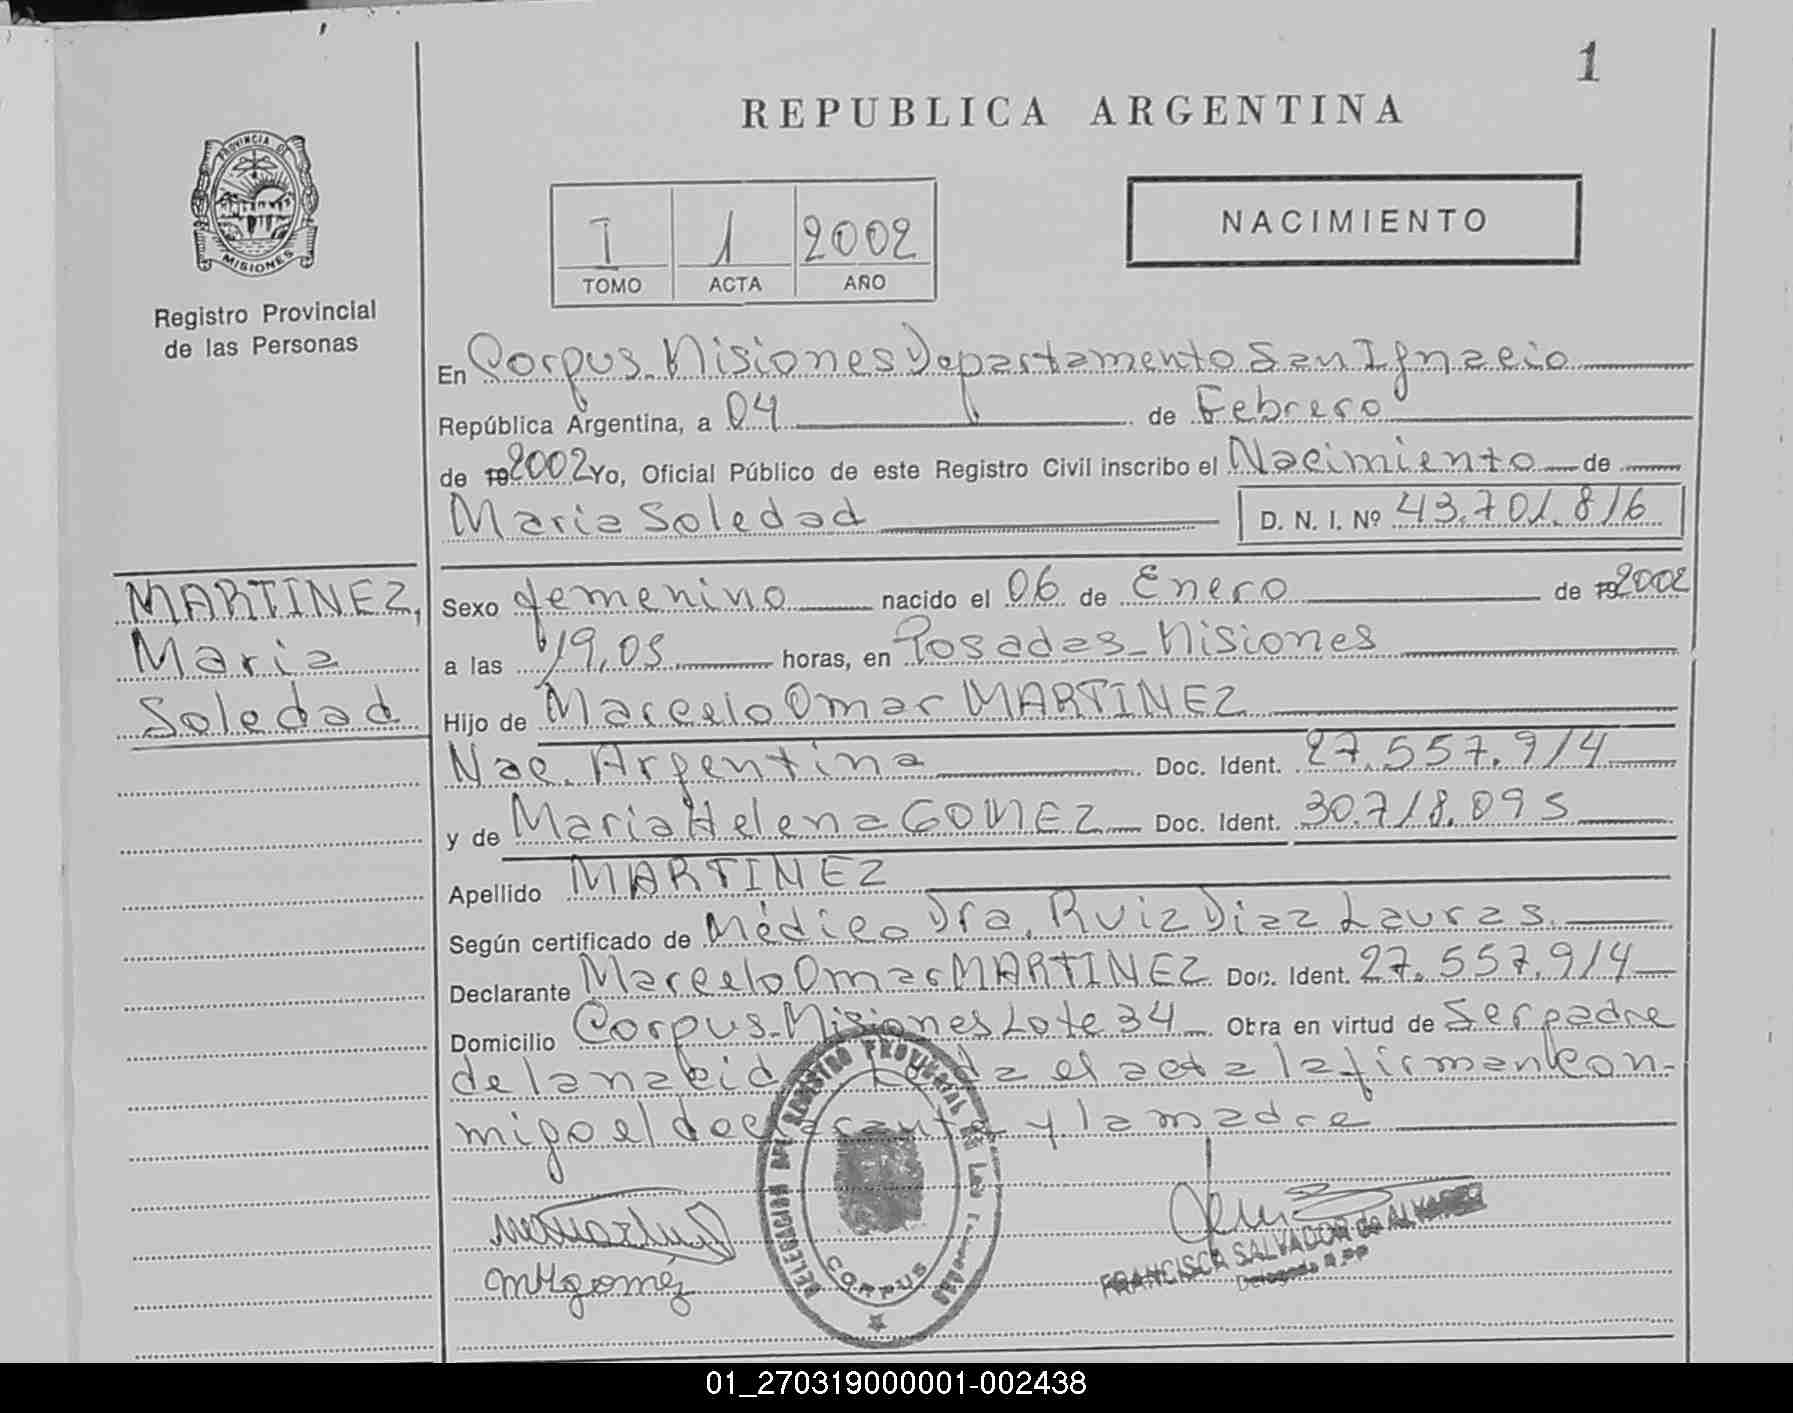 1
REPUBLICA ARGENTINA
PROVINCIA DE
MISIONES
Registro Provincial
de las Personas
I 1 2002
TOMO ACTA AÑO
NACIMIENTO
En Corpus-Misiones Departamento San Ignacio
República Argentina, a 04 de Febrero
de 19 2002 Yo, Oficial Público de este Registro Civil inscribo el Nacimiento de
Maria Soledad D. N. I. Nº 43.701.816
MARTINEZ,
Maria
Soledad
Sexo femenino nacido el 06 de Enero de 19 2002
a las 19,05 horas, en Posadas-Misiones
Hijo de Marcelo Omar MARTINEZ
Nac. Argentina Doc. Ident. 27.557.914
y de Maria Helena GOMEZ Doc. Ident. 30.718.095
Apellido MARTINEZ
Según certificado de Médico Dra. Ruiz Diaz Laura S.
Declarante Marcelo Omar MARTINEZ Doc. Ident. 27.557.914
Domicilio Corpus-Misiones Lote 34 Obra en virtud de Ser padre
de la nacid el acta la firman con-
migo el declarante y la madre
DELEGACION DEL REGISTRO PROVINCIAL DE LAS PERSONAS
CORPUS
MHgomez
FRANCISCA SALVADOR de ALVAREZ
Delegada R.P.P
01_270319000001-002438